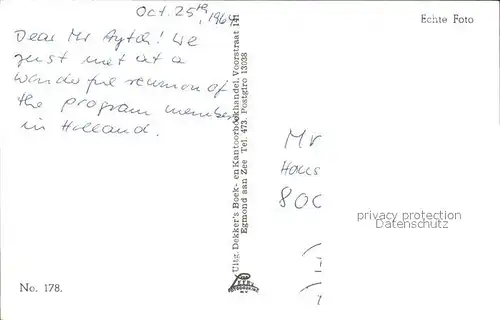 Oct. 25th, 1964
Echte Foto
Dear Mr Aytch! We
just met at a
wonderful reunion of
the program members
in Holland.
Uitg. Dekker's Boek- en Kantoorboekhandel, Voorstraat 141
Egmond aan Zee Tel. 473. Postgiro 13038
Mr
Haus
800
privacy protection
AnsichtskartenPool
No. 178.